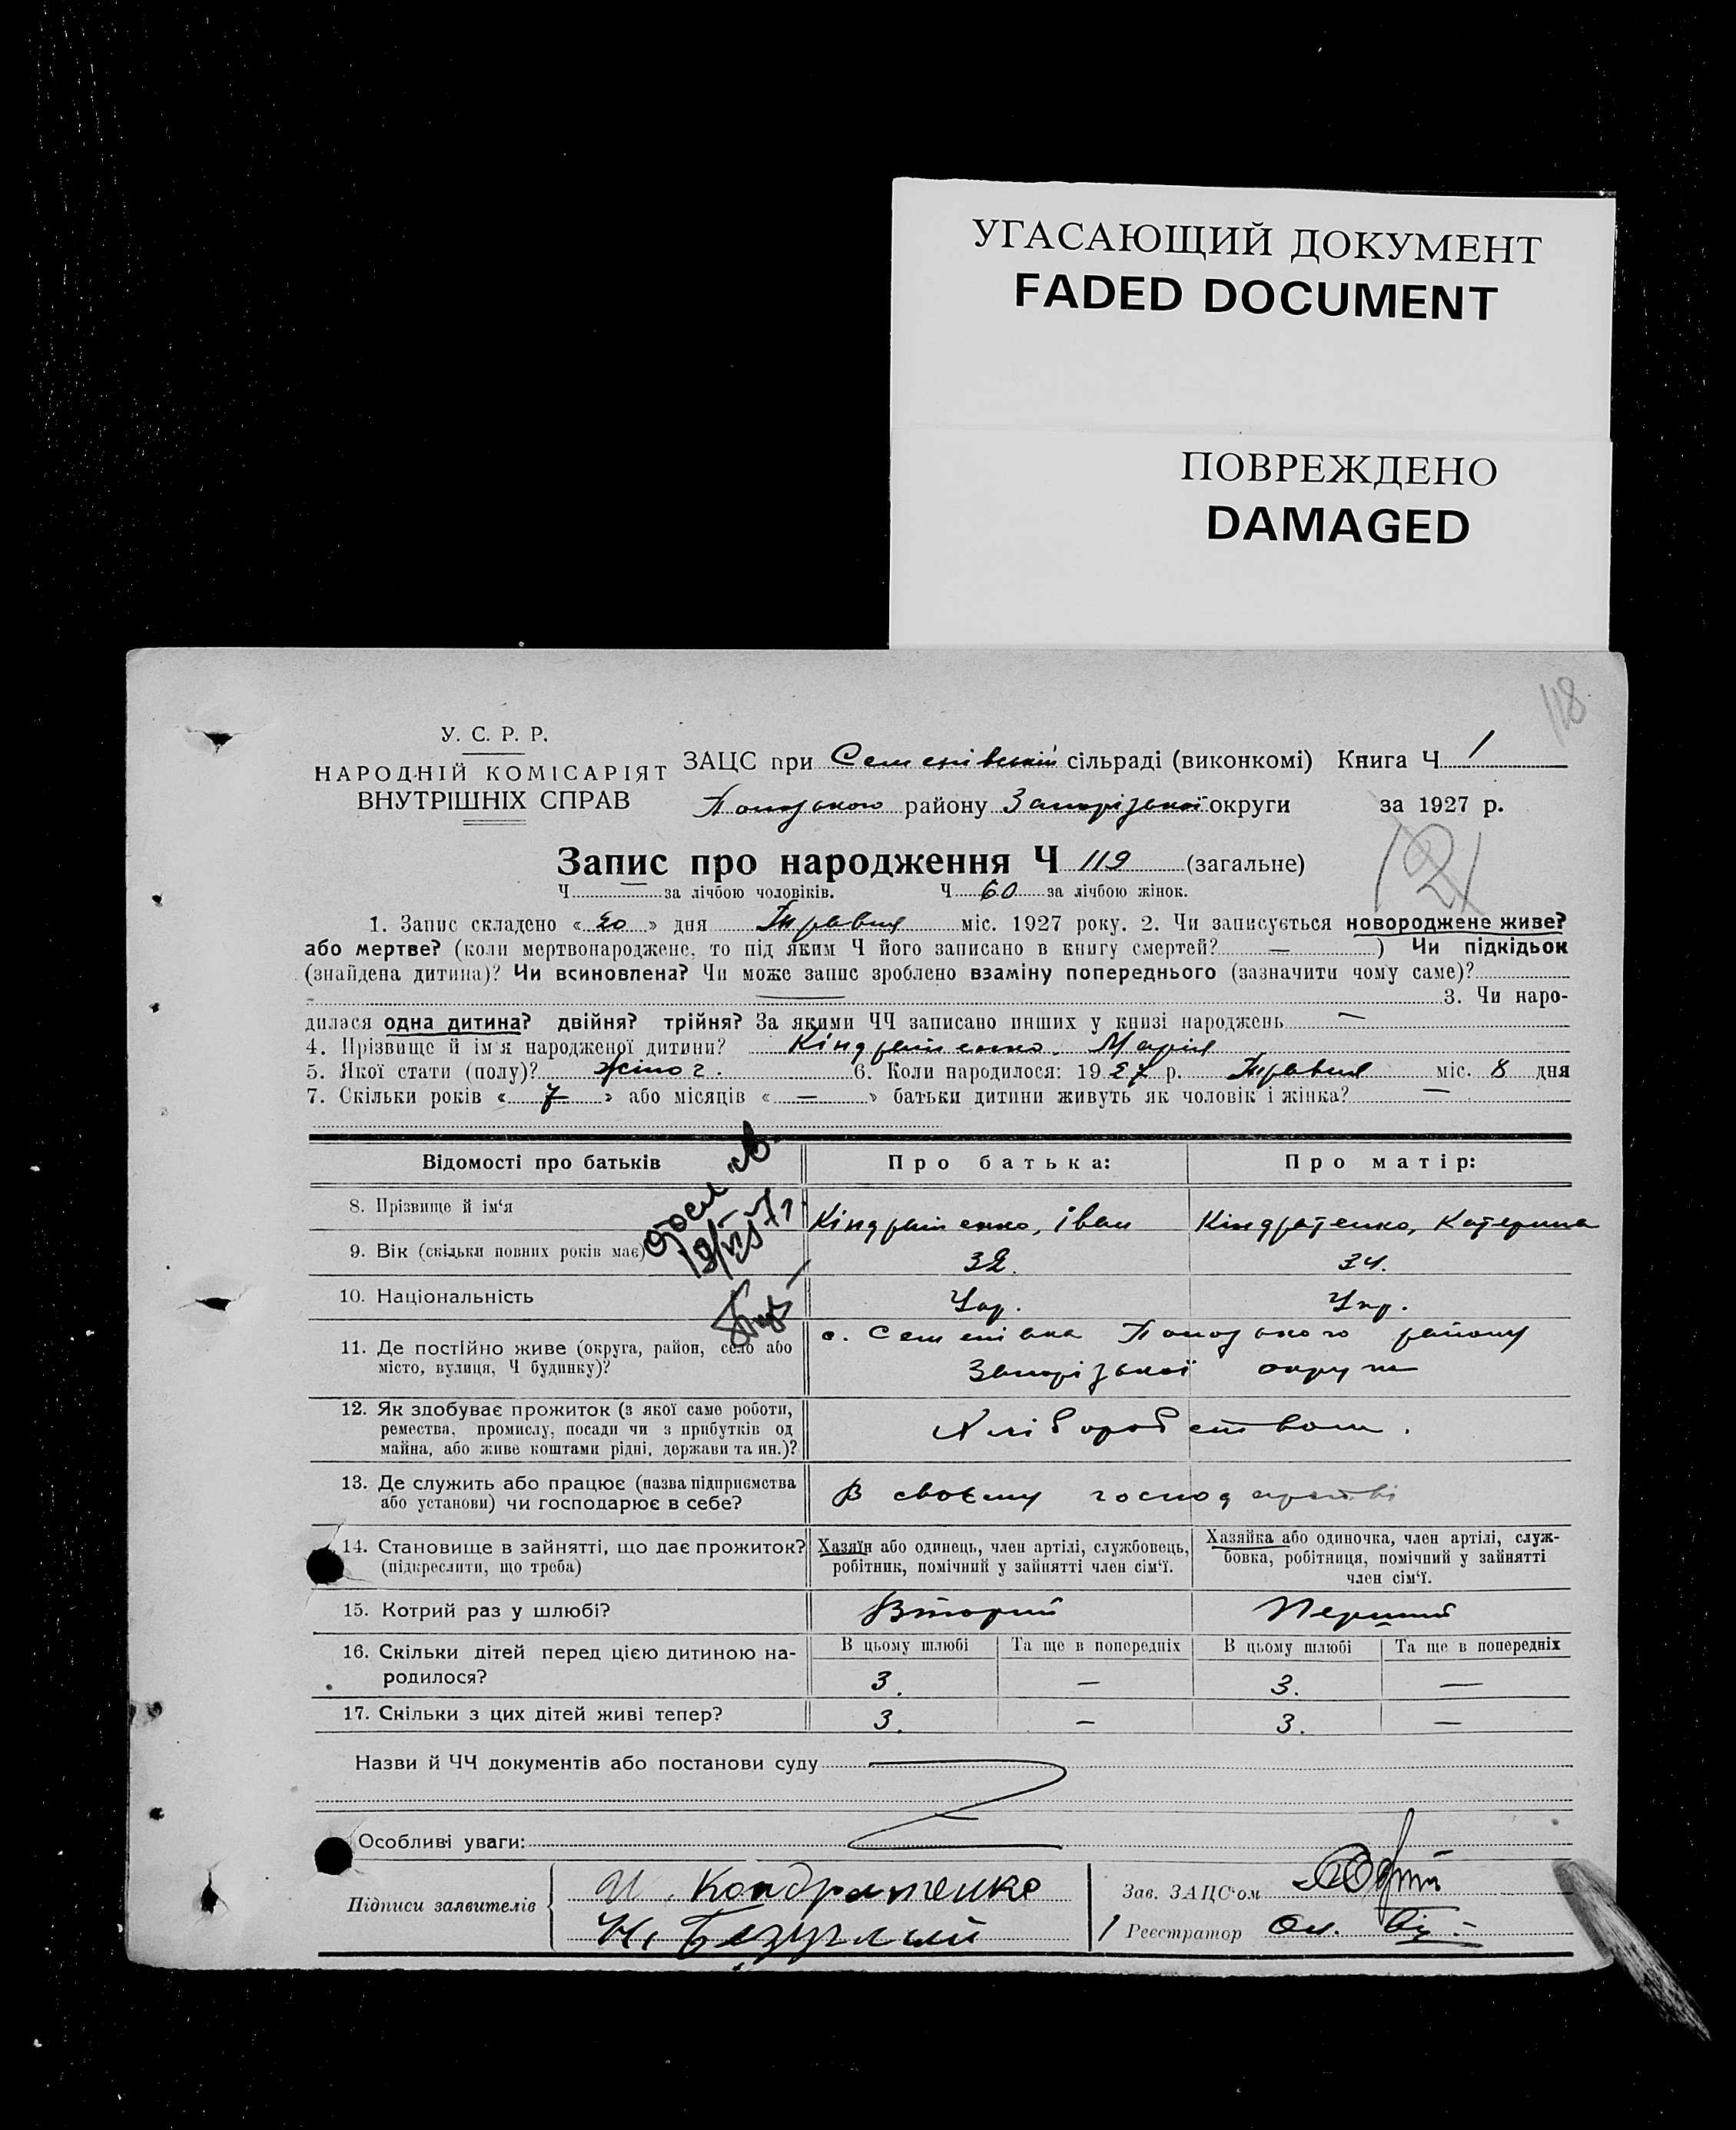 УГАСАЮЩИЙ ДОКУМЕНТ
FADED DOCUMENT
ПОВРЕЖДЕНО
DAMAGED
118
У. С. Р. Р.
НАРОДНІЙ КОМІСАРІЯТ
ВНУТРІШНІХ СПРАВ
ЗАЦС при Семенівській сільраді (виконкомі) Книга Ч 1
району Запорізької округи за 1927 р.
121
Запис про народження Ч 119 (загальне)
Ч — за лічбою чоловіків. Ч 60 за лічбою жінок.
1. Запис складено « 20 » дня Травня міс. 1927 року. 2. Чи записується новороджене живе?
або мертве? (коли мертвонароджене, то під яким Ч його записано в книгу смертей? — ) Чи підкідьок
(знайдена дитина)? Чи всиновлена? Чи може запис зроблено взаміну попереднього (зазначити чому саме)?
— 3. Чи наро-
дилася одна дитина? двійня? трійня? За якими ЧЧ записано инших у книзі народжень —
4. Прізвище й ім'я народженої дитини? Кіндратенко, Марія
5. Якої стати (полу)? жіноч. 6. Коли народилося: 1927 р. Травня міс. 8 дня
7. Скільки років « 7 » або місяців « — » батьки дитини живуть як чоловік і жінка? —
Відомості про батьків Про батька: Про матір:
8. Прізвище й ім'я Кіндратенко, Іван Кіндратенко, Катерина
9. Вік (скільки повних років має) 32. 34.
10. Національність Укр. Укр.
11. Де постійно живе (округа, район, село або
місто, вулиця, Ч будинку)?
с. Семенівка району
Запорізької округи
12. Як здобуває прожиток (з якої саме роботи,
ремества, промислу, посади чи з прибутків од
майна, або живе коштами рідні, держави та ин.)?
Хліборобством.
13. Де служить або працює (назва підприємства
або установи) чи господарює в себе?
В своєму господарстві
14. Становище в зайнятті, що дає прожиток?
(підкреслити, що треба)
Хазяїн або одинець, член артілі, службовець,
робітник, помічний у зайнятті член сім'ї.
Хазяйка або одиночка, член артілі, служ-
бовка, робітниця, помічний у зайнятті
член сім'ї.
15. Котрий раз у шлюбі? Вторий Перший
16. Скільки дітей перед цією дитиною на-
родилося?
В цьому шлюбі Та ще в попередніх В цьому шлюбі Та ще в попередніх
3. — 3. —
17. Скільки з цих дітей живі тепер? 3. — 3. —
Назви й ЧЧ документів або постанови суду
Особливі уваги:
Підписи заявителів
И. Кондратенко
Безуглий
Зав. ЗАЦС'ом
Реєстратор